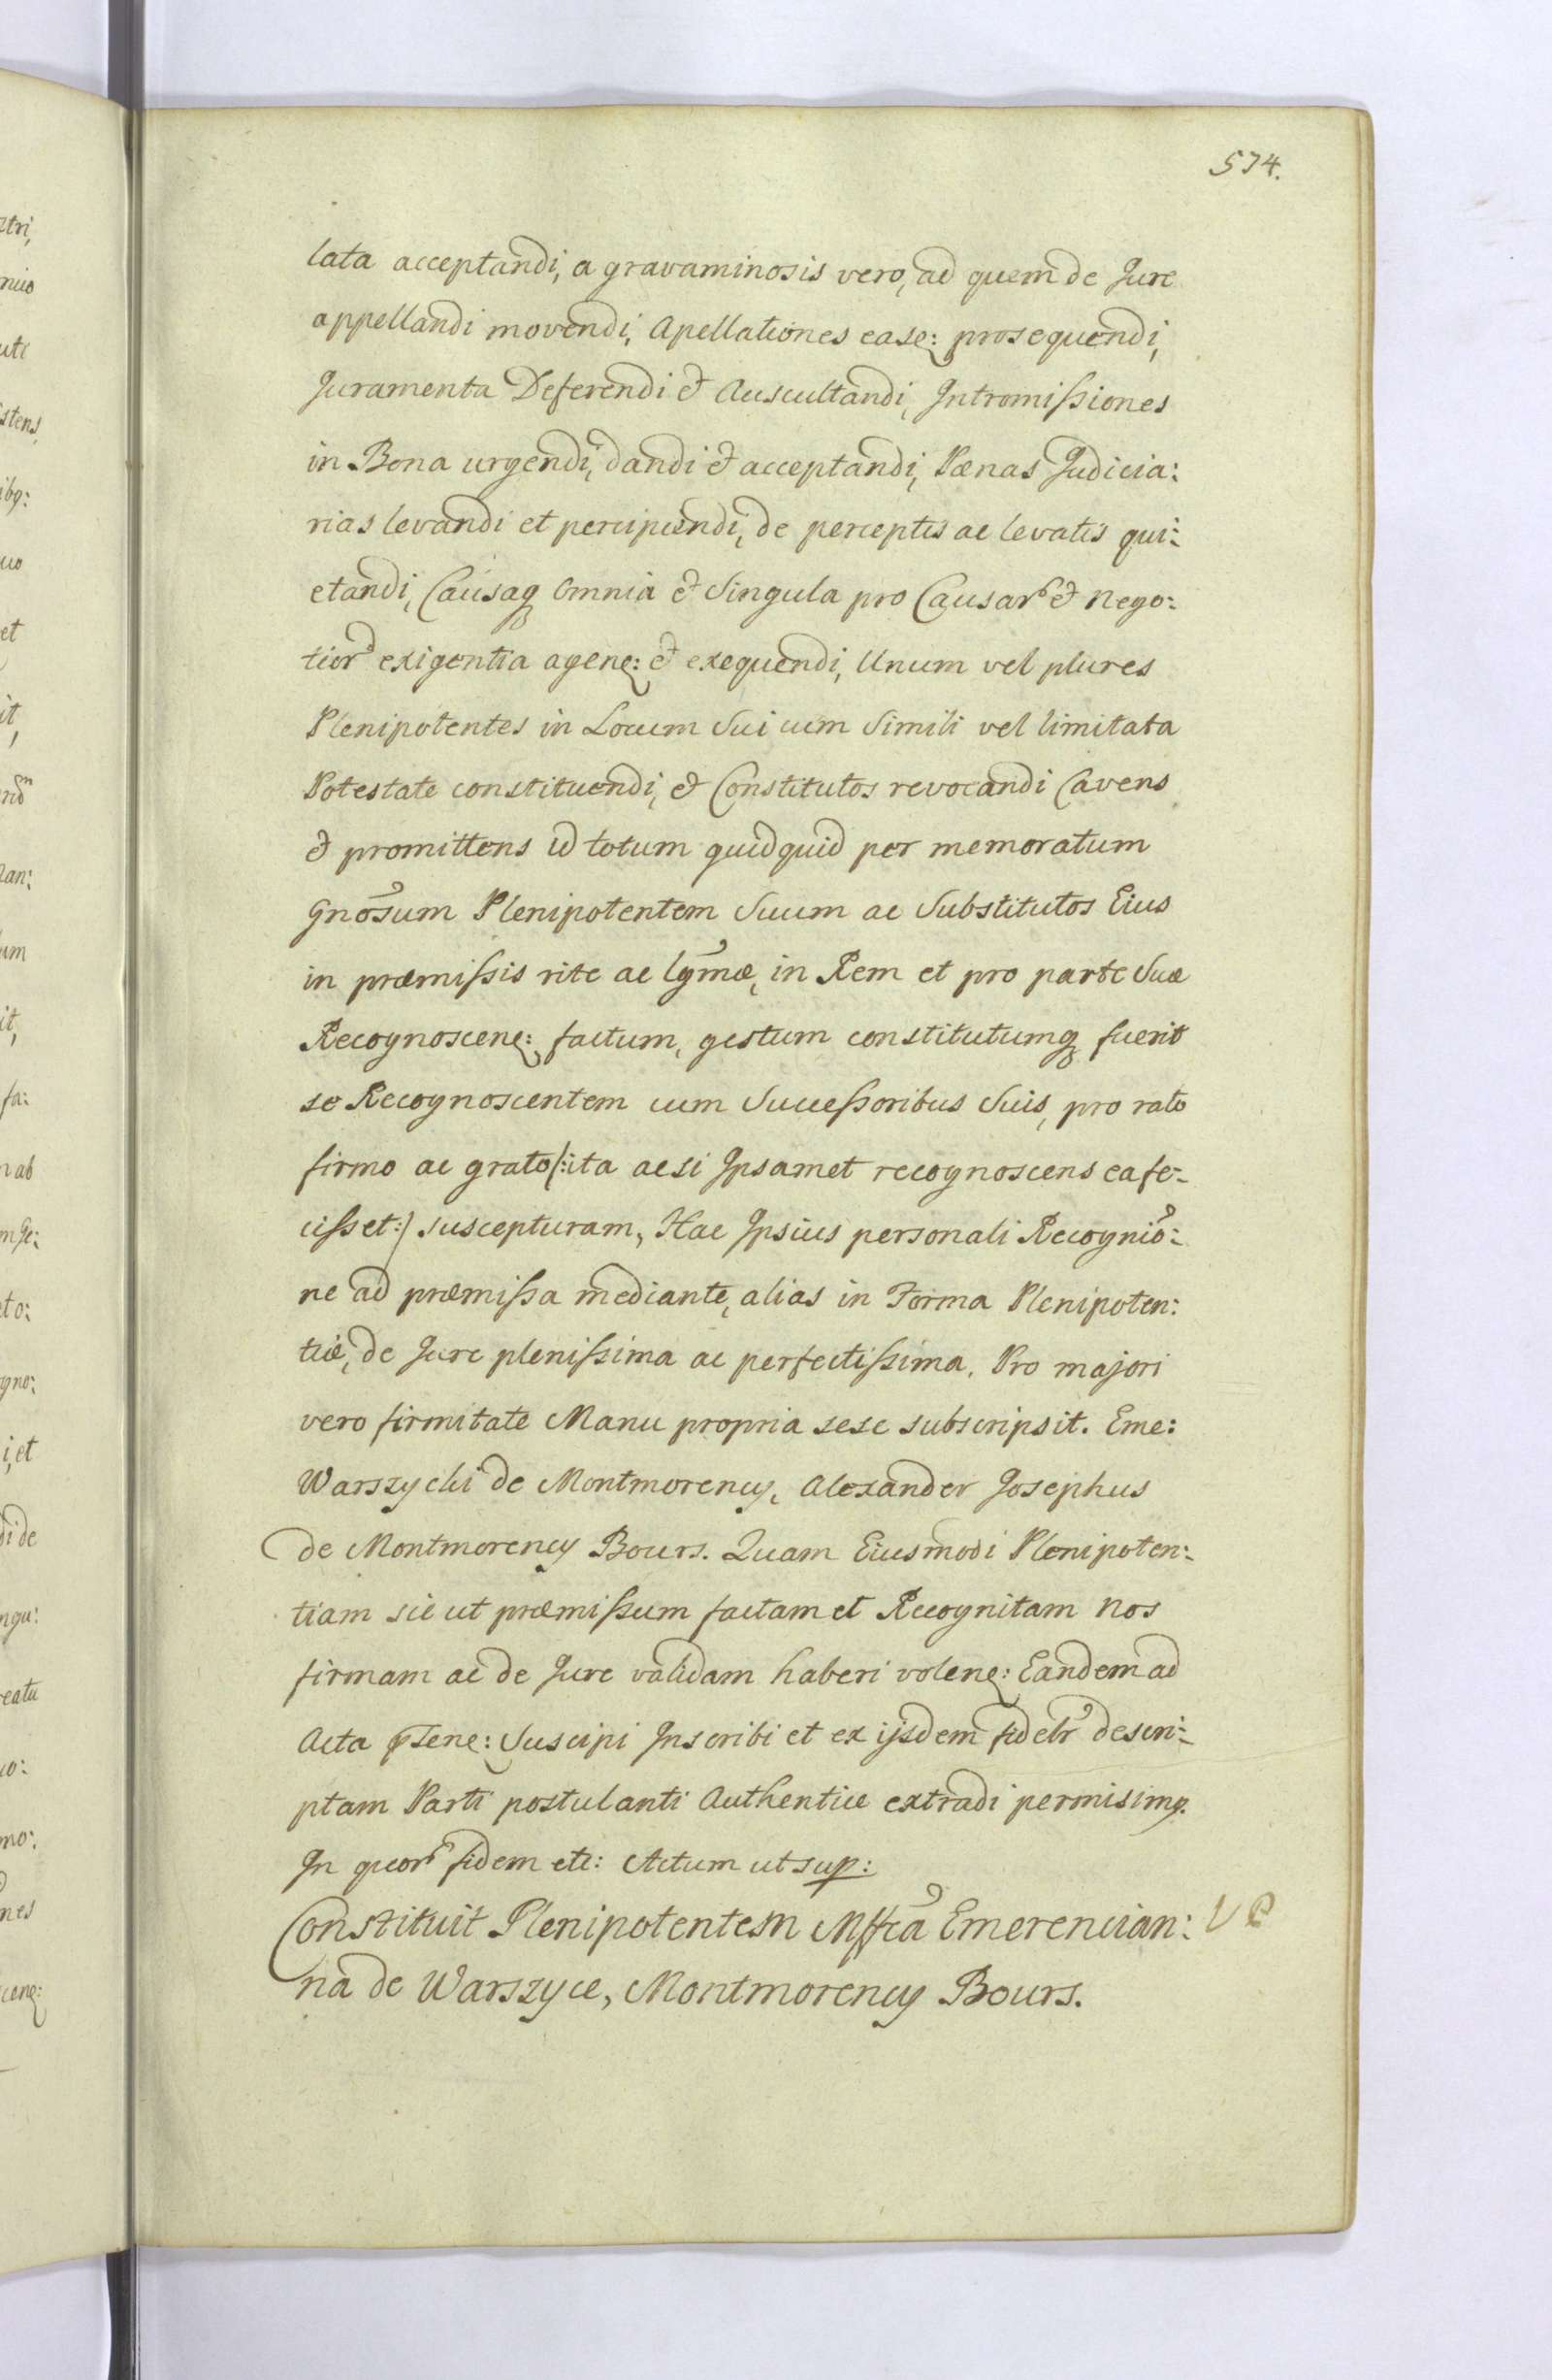 574.
lata acceptandi, a gravaminosis vero, ad quem de Jure
appellandi movendi, Apellationes easq: prosequendi,
Juramenta Deferendi et Auscultandi, Intromißiones
in Bona urgendi, dandi et acceptandi, Pænas Judicia:
rias levandi et percipiendi, de perceptis ac levatis qui:
etandi, Causaq Omnia et Singula pro Causar et Nego:
tior exigentia agenq: et exequendi, Unum vel plures
Plenipotentes in Locum Sui cum Simili vel limitata
Potestate constituendi, et Constitutos revocandi Cavens
et promittens id totum quidquid per memoratum
Gnosum Plenipotentem Suum ac Substitutos Eius
in præmißis rite ac lgmæ, in Rem et pro parte Suæ
Recognoscenq: factum, gestum constitutumq fuerit
se Recognoscentem cum Succeßoribus Suis, pro rato
firmo ac grato /:ita acsi Ipsamet recognoscens ea fe:
cißet:/ suscepturam, Hac Ipsius personali Recognio:
ne ad præmißa mediante, alias in Forma Plenipoten:
tiæ, de Jure plenißima ac perfectißima. Pro majori
vero firmitate Manu propria sese subscripsit. Eme:
Warszycki de Montmorency, Alexander Josephus
de Montmorency Bours. Quam Eiusmodi Plenipoten:
tiam sic ut præmißum factam et Recognitam Nos
firmam ac de Jure validam haberi volenq: Eandem ad
Acta pSenq: Suscipi Inscribi et ex ijsdem fidelr descri:
ptam Parti postulanti Authentice extradi permisimq.
In quor fidem etc: Actum ut sup:
Constituit Plenipotentem Mffca Emerencian:
na de Warszyce, Montmorency Bours.